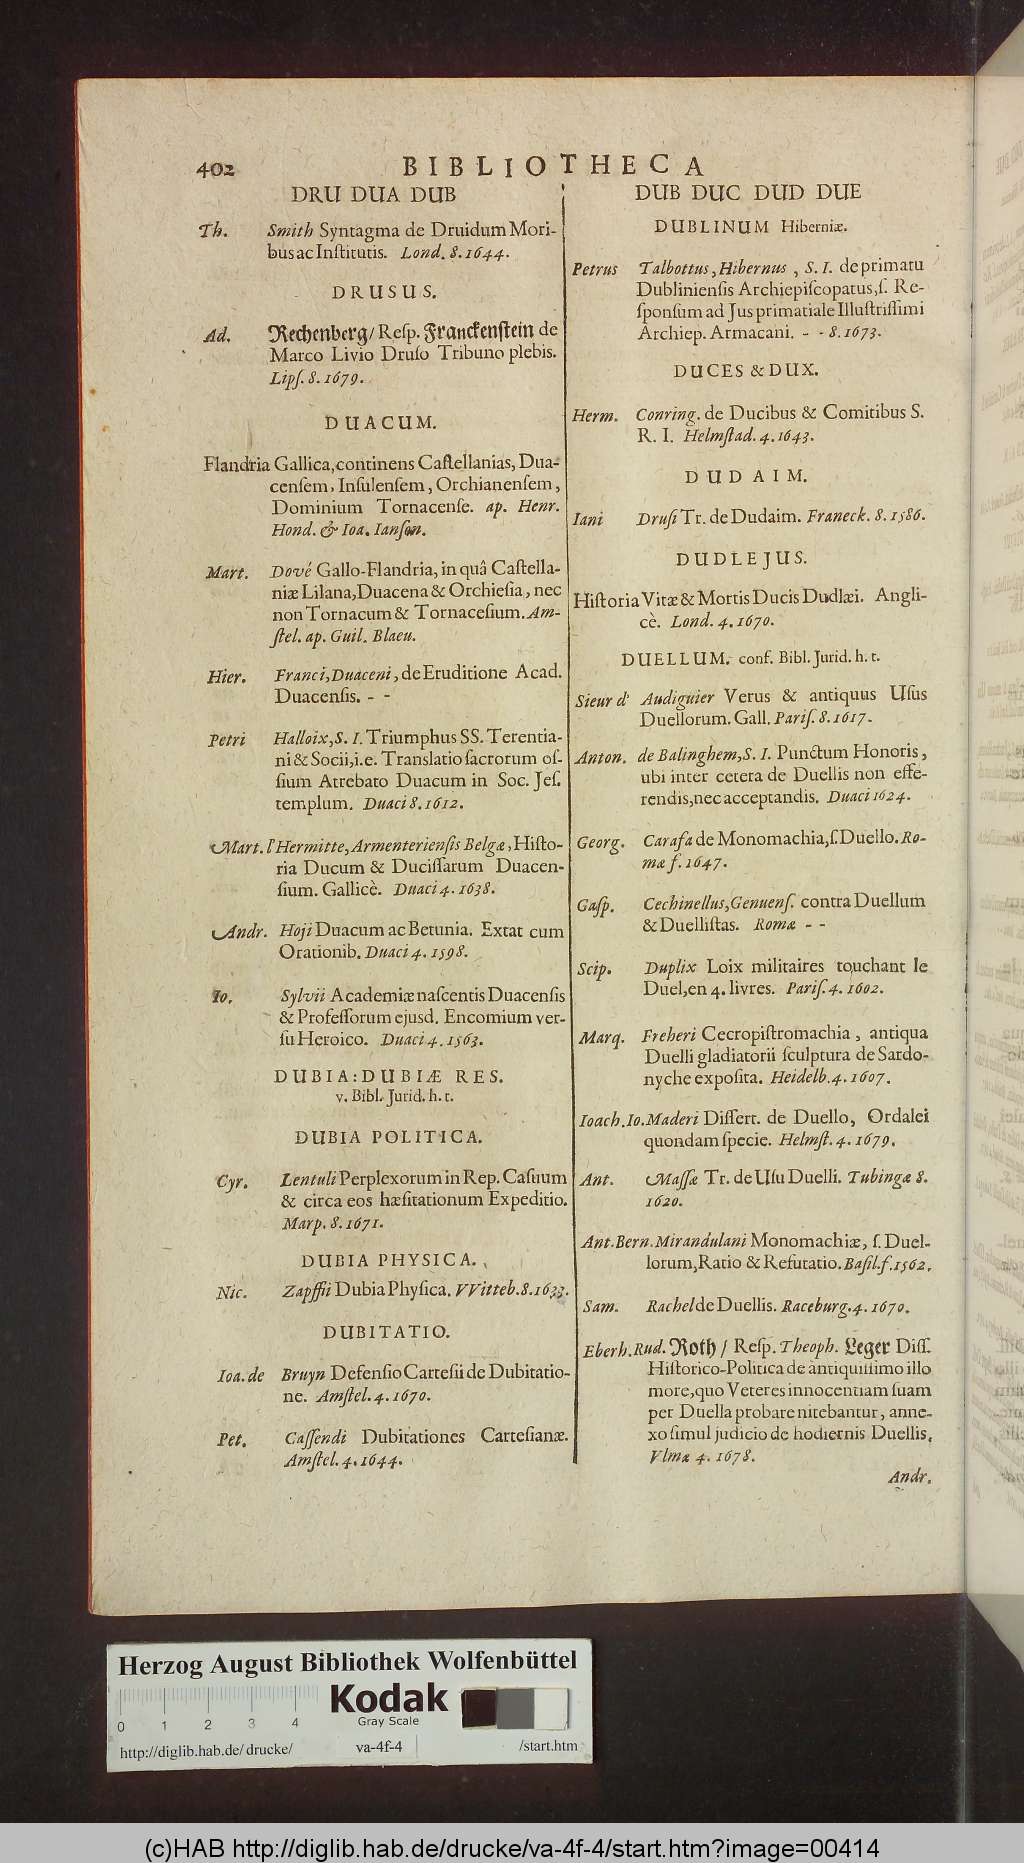 402
BIBLIOTHECA
DRU DUA DUB
Th. Smith Syntagma de Druidum Mori-
bus ac Inſtitutis. Lond. 8. 1644.
DRUSUS.
Ad. Rechenberg/ Reſp. Franckenſtein de
Marco Livio Druſo Tribuno plebis.
Lipſ. 8. 1679.
DUACUM.
Flandria Gallica, continens Caſtellanias, Dua-
cenſem, Inſulenſem, Orchianenſem,
Dominium Tornacenſe. ap. Henr.
Hond. & Ioa. Ianſon.
Mart. Dové Gallo-Flandria, in quâ Caſtella-
niæ Lilana, Duacena & Orchieſia, nec
non Tornacum & Tornaceſium. Am-
ſtel. ap. Guil. Blaeu.
Hier. Franci, Duaceni, de Eruditione Acad.
Duacenſis. - -
Petri Halloix, S. I. Triumphus SS. Terentia-
ni & Socii, i.e. Translatio ſacrorum oſ-
ſium Atrebato Duacum in Soc. Jeſ.
templum. Duaci 8. 1612.
Mart. l'Hermitte, Armenterienſis Belgæ, Hiſto-
ria Ducum & Duciſſarum Duacen-
ſium. Gallicè. Duaci 4. 1638.
Andr. Hoji Duacum ac Betunia. Extat cum
Orationib. Duaci 4. 1598.
Io. Sylvii Academiæ naſcentis Duacenſis
& Profeſſorum ejusd. Encomium ver-
ſu Heroico. Duaci 4. 1563.
DUBIA: DUBIÆ RES.
v. Bibl. Jurid. h. t.
DUBIA POLITICA.
Cyr. Lentuli Perplexorum in Rep. Caſuum
& circa eos hæſitationum Expeditio.
Marp. 8. 1671.
DUBIA PHYSICA.
Nic. Zapffii Dubia Phyſica. VVitteb. 8. 1633.
DUBITATIO.
Ioa. de Bruyn Defenſio Carteſii de Dubitatio-
ne. Amſtel. 4. 1670.
Pet. Caſſendi Dubitationes Carteſianæ.
Amſtel. 4. 1644.
DUB DUC DUD DUE
DUBLINUM Hiberniæ.
Petrus Talbottus, Hibernus, S. I. de primatu
Dublinienſis Archiepiſcopatus, ſ. Re-
ſponſum ad Jus primatiale Illuſtriſſimi
Archiep. Armacani. - - 8. 1673.
DUCES & DUX.
Herm. Conring. de Ducibus & Comitibus S.
R. I. Helmſtad. 4. 1643.
DUDAIM.
Iani Druſi Tr. de Dudaim. Franeck. 8. 1586.
DUDLEJUS.
Hiſtoria Vitæ & Mortis Ducis Dudlæi. Angli-
cè. Lond. 4. 1670.
DUELLUM. conf. Bibl. Jurid. h. t.
Sieur d' Audiguier Verus & antiquus Uſus
Duellorum. Gall. Pariſ. 8. 1617.
Anton. de Balinghem, S. I. Punctum Honoris,
ubi inter cetera de Duellis non effe-
rendis, nec acceptandis. Duaci 1624.
Georg. Carafa de Monomachia, ſ. Duello. Ro-
mæ f. 1647.
Gaſp. Cechinellus, Genuenſ. contra Duellum
& Duelliſtas. Romæ - -
Scip. Duplix Loix militaires touchant le
Duel, en 4. livres. Pariſ. 4. 1602.
Marq. Freheri Cecropiſtromachia, antiqua
Duelli gladiatorii ſculptura de Sardo-
nyche expoſita. Heidelb. 4. 1607.
Ioach. Io. Maderi Diſſert. de Duello, Ordalei
quondam ſpecie. Helmſt. 4. 1679.
Ant. Maſſæ Tr. de Uſu Duelli. Tubingæ 8.
1620.
Ant. Bern. Mirandulani Monomachiæ, ſ. Duel-
lorum, Ratio & Refutatio. Baſil. f. 1562.
Sam. Rachel de Duellis. Raceburg. 4. 1670.
Eberh. Rud. Roth / Reſp. Theoph. Leger Diſſ.
Hiſtorico-Politica de antiquiſſimo illo
more, quo Veteres innocentiam ſuam
per Duella probare nitebantur, anne-
xo ſimul judicio de hodiernis Duellis.
Vlmæ 4. 1678.
Andr.
Herzog August Bibliothek Wolfenbüttel
Kodak
Gray Scale
0 1 2 3 4
http://diglib.hab.de/drucke/ va-4f-4 /start.htm
(c)HAB http://diglib.hab.de/drucke/va-4f-4/start.htm?image=00414